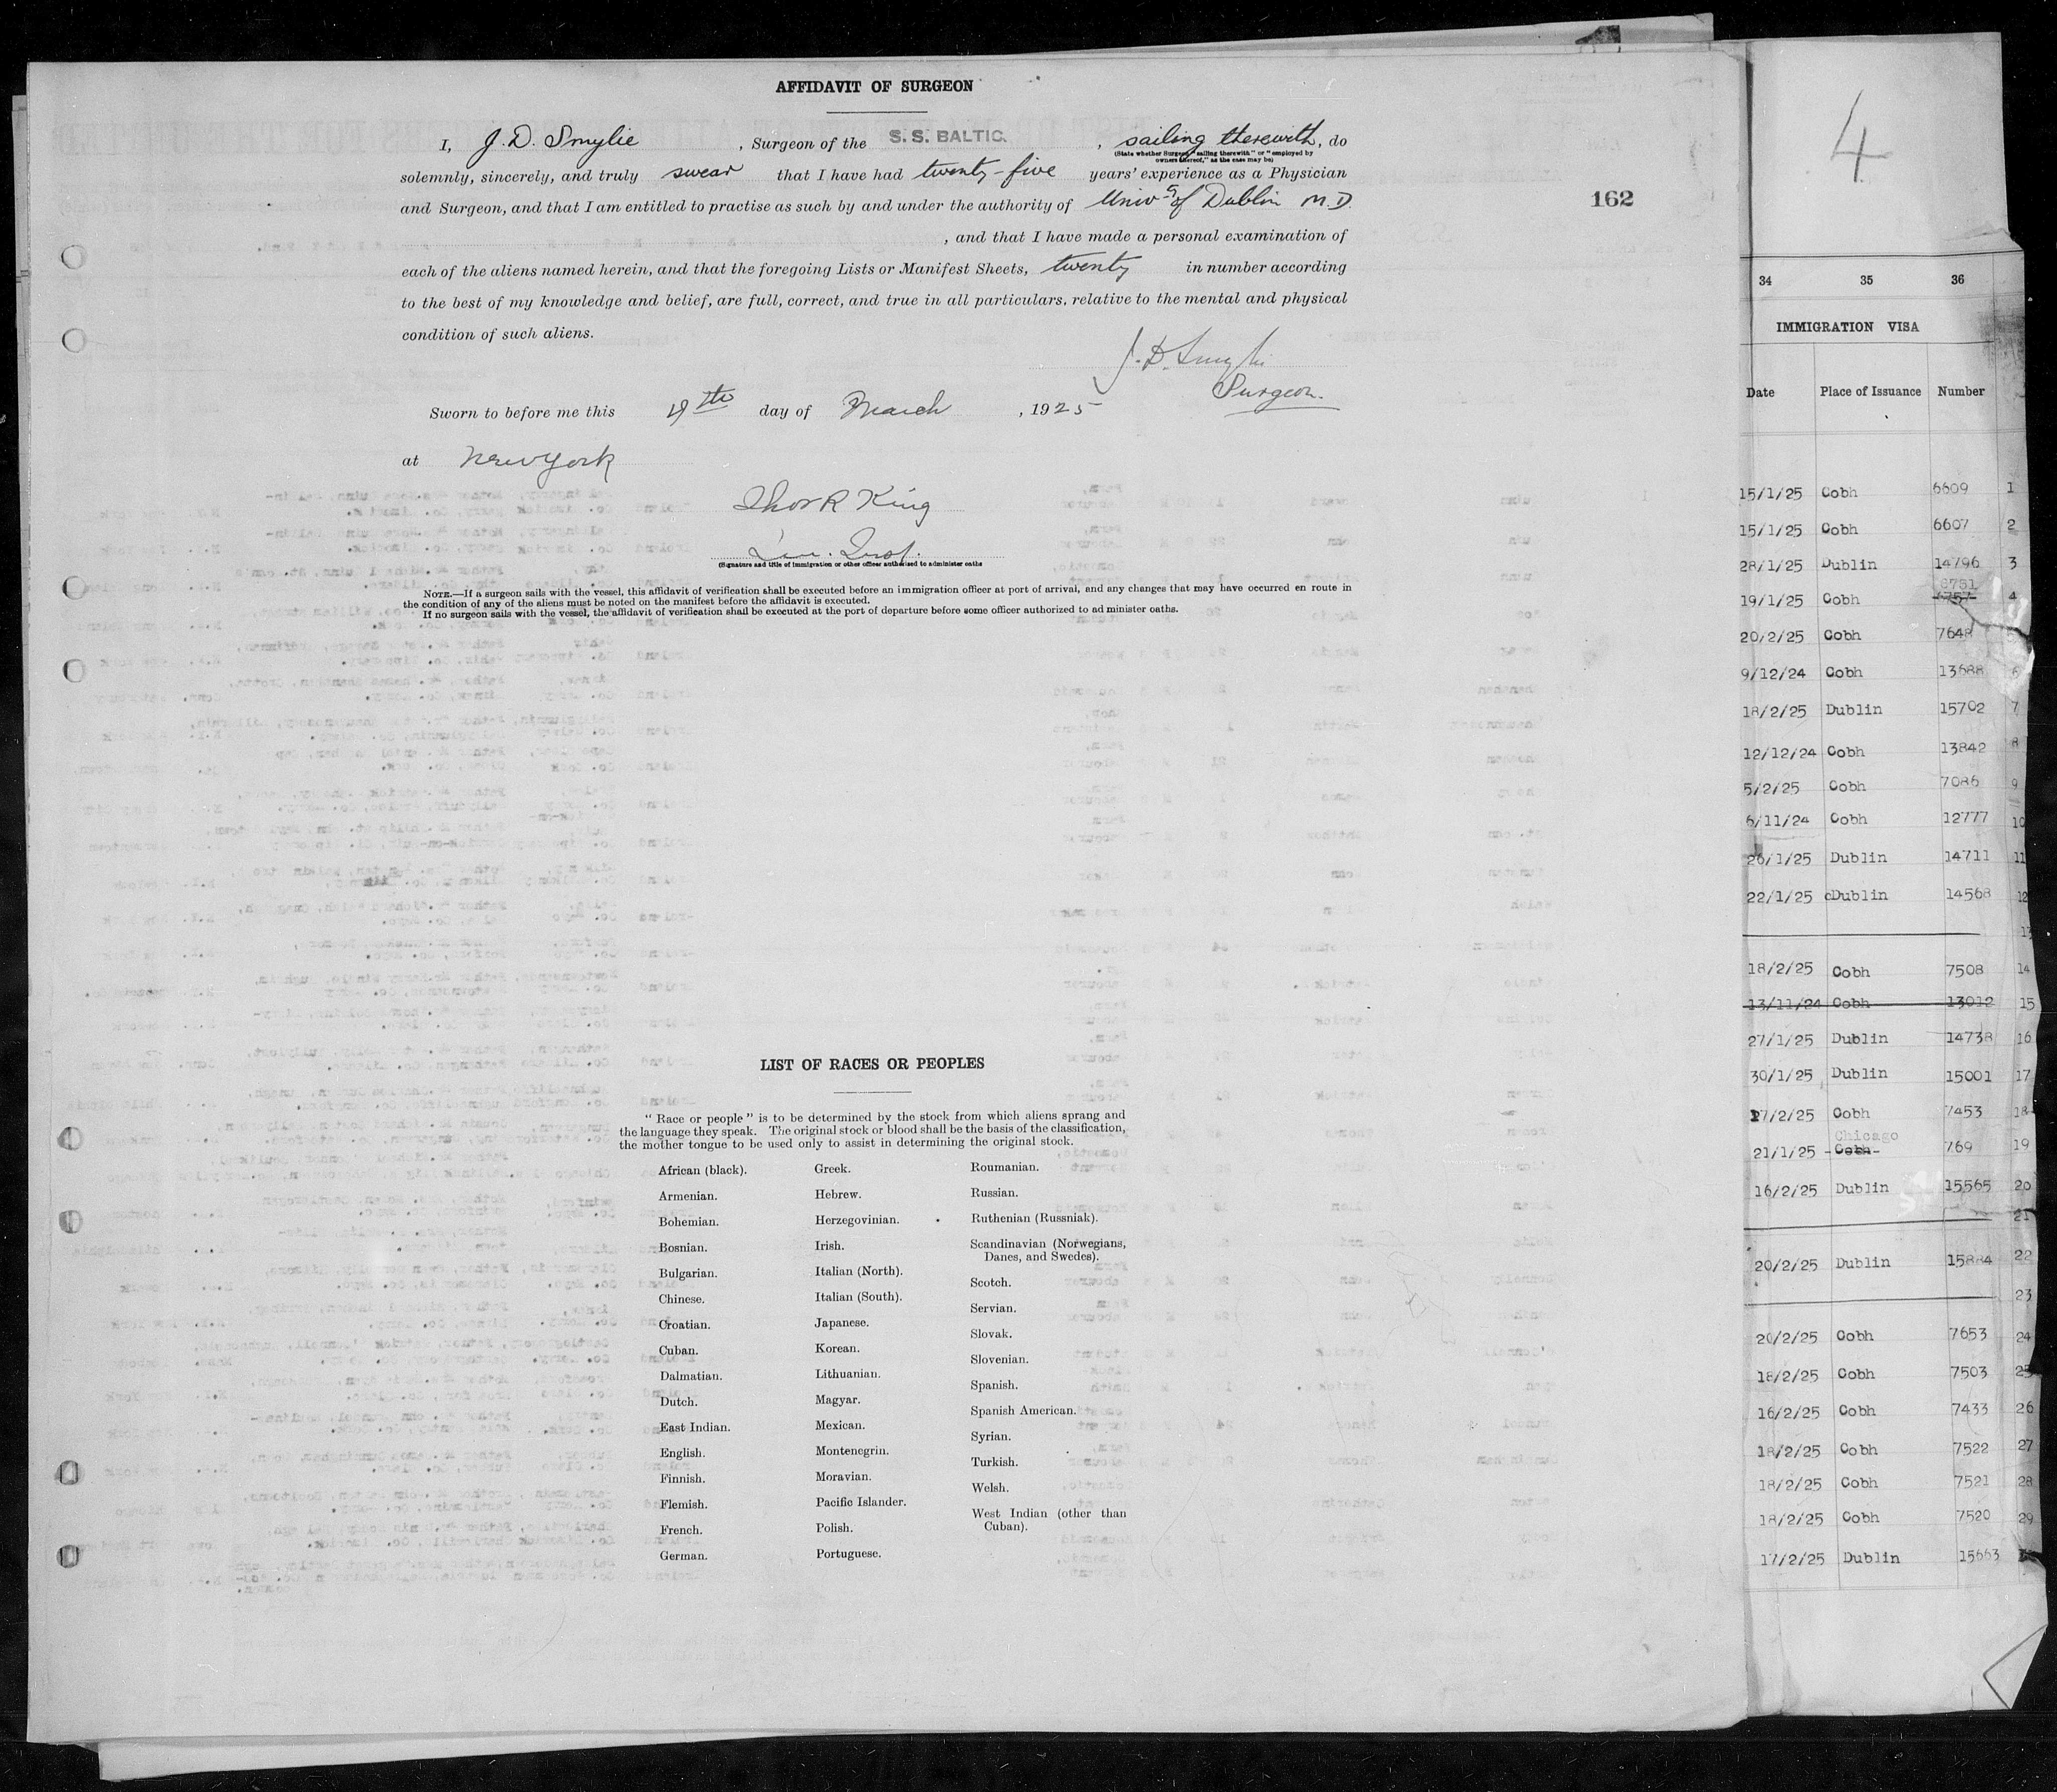 AFFIDAVIT OF SURGEON
I, J. D. Smylie, Surgeon of the S. S. BALTIC, sailing therewith, do
(State whether Surgeon "sailing therewith" or "employed by
owners thereof," as the case may be)
solemnly, sincerely, and truly swear that I have had twenty-five years' experience as a Physician
and Surgeon, and that I am entitled to practise as such by and under the authority of Univ of Dublin M.D.
, and that I have made a personal examination of
each of the aliens named herein, and that the foregoing Lists or Manifest Sheets, twenty in number according
to the best of my knowledge and belief, are full, correct, and true in all particulars, relative to the mental and physical
condition of such aliens.
J. D. Smylie
Surgeon.
Sworn to before me this day of March, 1925
at New York
Thos R King
(Signature and title of Immigration or other officer authorized to administer oaths
NOTE.—If a surgeon sails with the vessel, this affidavit of verification shall be executed before an immigration officer at port of arrival, and any changes that may have occurred en route in
the condition of any of the aliens must be noted on the manifest before the affidavit is executed.
If no surgeon sails with the vessel, the affidavit of verification shall be executed at the port of departure before some officer authorized to administer oaths.
162
LIST OF RACES OR PEOPLES
"Race or people" is to be determined by the stock from which aliens sprang and
the language they speak. The original stock or blood shall be the basis of the classification,
the mother tongue to be used only to assist in determining the original stock.
African (black).
Armenian.
Bohemian.
Bosnian.
Bulgarian.
Chinese.
Croatian.
Cuban.
Dalmatian.
Dutch.
East Indian.
English.
Finnish.
Flemish.
French.
German.
Greek.
Hebrew.
Herzegovinian.
Irish.
Italian (North).
Italian (South).
Japanese.
Korean.
Lithuanian.
Magyar.
Mexican.
Montenegrin.
Moravian.
Pacific Islander.
Polish.
Portuguese.
Roumanian.
Russian.
Ruthenian (Russniak).
Scandinavian (Norwegians,
Danes, and Swedes).
Scotch.
Servian.
Slovak.
Slovenian.
Spanish.
Spanish American.
Syrian.
Turkish.
Welsh.
West Indian (other than
Cuban).
4
34 35 36
IMMIGRATION VISA
Date Place of Issuance Number
15/1/25 Cobh 6609 1
15/1/25 Cobh 6607 2
28/1/25 Dublin 14796 3
6751
19/1/25 Cobh 4
20/2/25 Cobh 7648
9/12/24 Cobh 13688 6
18/2/25 Dublin 15702 7
12/12/24 Cobh 13842 8
5/2/25 Cobh 7086 9
6/11/24 Cobh 12777 10
26/1/25 Dublin 14711 11
22/1/25 cDublin 14568 12
13
18/2/25 Cobh 7508 14
13/11/24 Cobh 13012 15
27/1/25 Dublin 14738 16
30/1/25 Dublin 15001 17
17/2/25 Cobh 7453 18
Chicago
21/1/25 -Cobh- 769 19
16/2/25 Dublin 15565 20
21
20/2/25 Dublin 15884 22
23
20/2/25 Cobh 7653 24
18/2/25 Cobh 7503 25
16/2/25 Cobh 7433 26
18/2/25 Cobh 7522 27
18/2/25 Cobh 7521 28
18/2/25 Cobh 7520 29
17/2/25 Dublin 15663